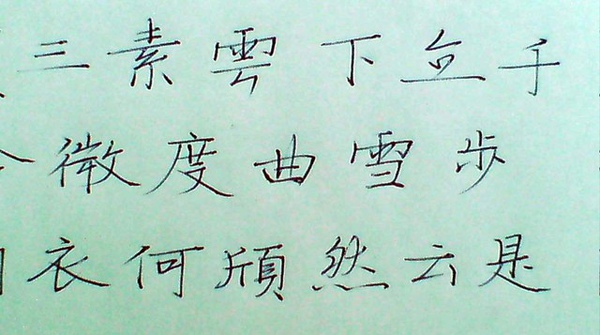 三素雲下立千
微度曲雪步
衣何頎然云是